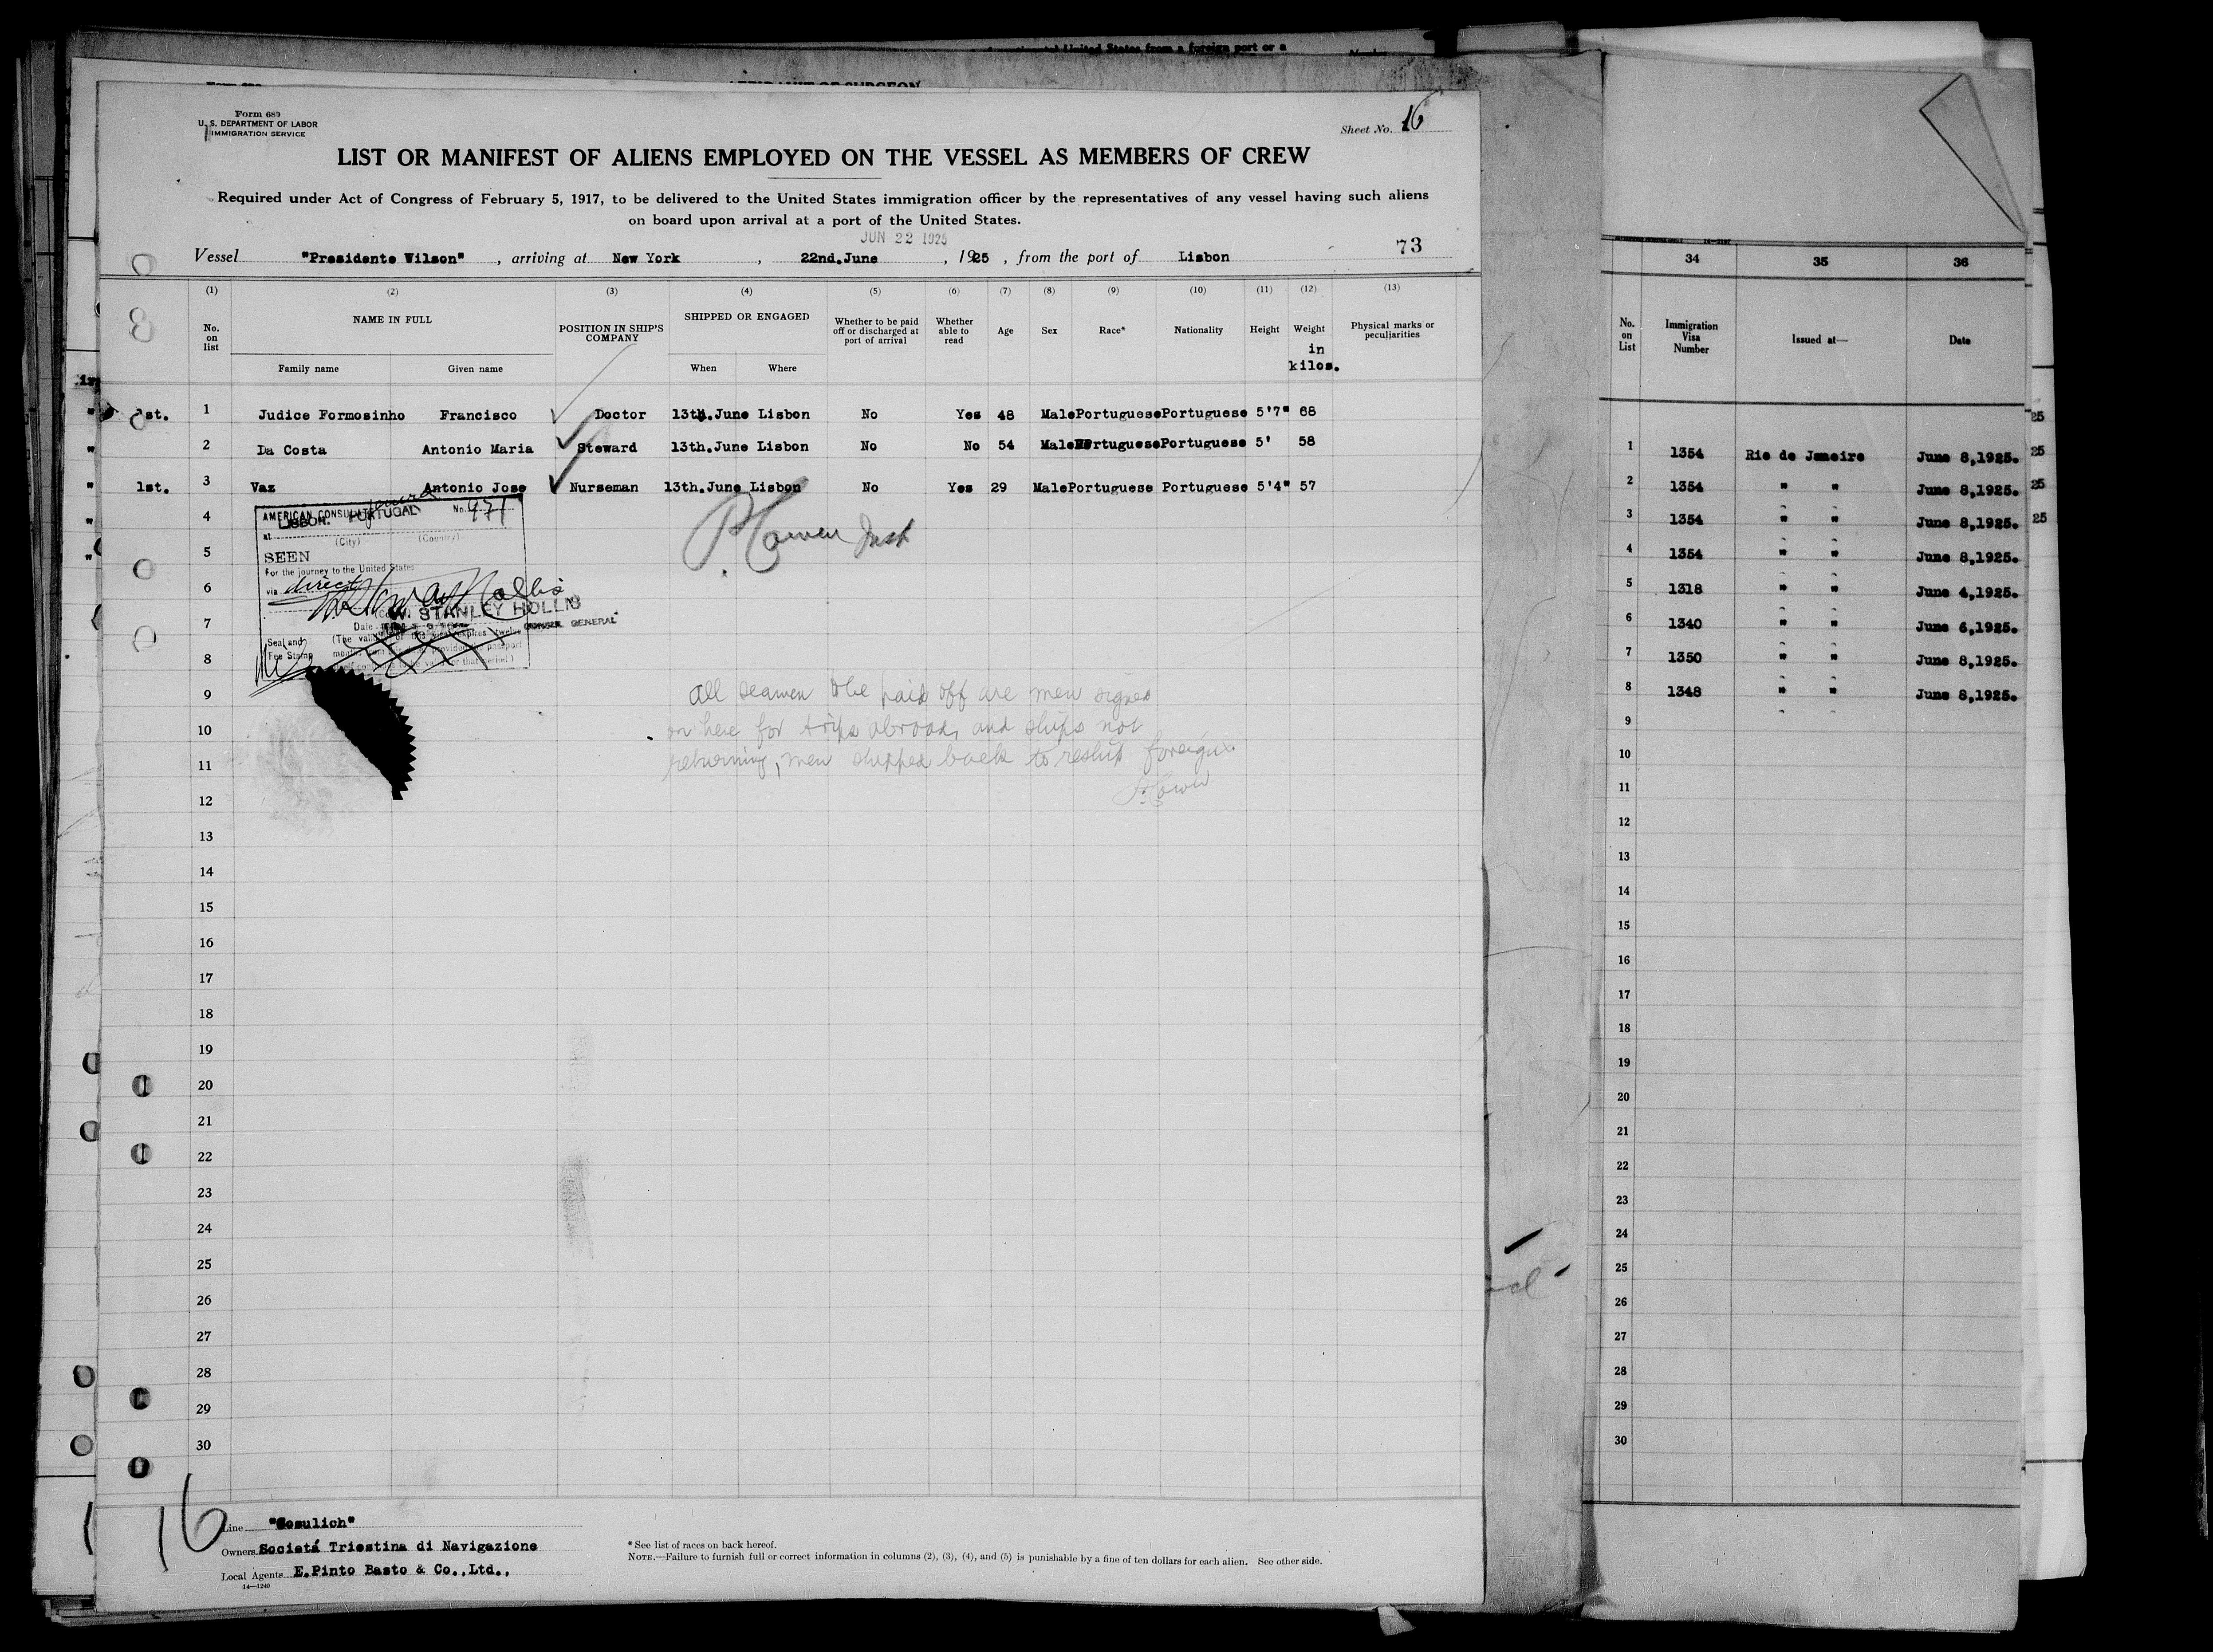 Form 689
U. S. DEPARTMENT OF LABOR
IMMIGRATION SERVICE
Sheet No. 16
LIST OR MANIFEST OF ALIENS EMPLOYED ON THE VESSEL AS MEMBERS OF CREW
Required under Act of Congress of February 5, 1917, to be delivered to the United States immigration officer by the representatives of any vessel having such aliens
on board upon arrival at a port of the United States.
JUN 22 1925
73
Vessel "Presidente Wilson", arriving at New York, 22nd.June, 1925, from the port of Lisbon
(1) (2) (3) (4) (5) (6) (7) (8) (9) (10) (11) (12) (13)
No. on list NAME IN FULL POSITION IN SHIP'S COMPANY SHIPPED OR ENGAGED Whether to be paid off or discharged at port of arrival Whether able to read Age Sex Race* Nationality Height Weight in kilos. Physical marks or peculiarities
Family name Given name When Where
1st. 1 Judice Formosinho Francisco Doctor 13th.June Lisbon No Yes 48 Male Portuguese Portuguese 5'7" 68
2 Da Costa Antonio Maria Steward 13th.June Lisbon No No 54 Male Portuguese Portuguese 5' 58
1st. 3 Vaz Antonio Jose Nurseman 13th.June Lisbon No Yes 29 Male Portuguese Portuguese 5'4" 57
4
5
6
7
8
9
10
11
12
13
14
15
16
17
18
19
20
21
22
23
24
25
26
27
28
29
30
AMERICAN CONSULATE No. 971
at LISBON. PORTUGAL
(City) (Country)
SEEN
For the journey to the United States
via direct
W. STANLEY HOLLIS
CONSUL GENERAL
Date
Seal and
Fee Stamp
all seamen to be paid off are men signed
on here for trips abroad, and ships not
returning, men shipped back to reship foreign
16
Line "Cosulich"
Owners Societá Triestina di Navigazione
Local Agents E.Pinto Basto & Co.,Ltd.,
14—1240
* See list of races on back hereof.
NOTE.—Failure to furnish full or correct information in columns (2), (3), (4), and (5) is punishable by a fine of ten dollars for each alien. See other side.
34 35 36
No. on List Immigration Visa Number Issued at— Date
1 1354 Rio de Janeiro June 8,1925.
2 1354 " " June 8,1925.
3 1354 " " June 8,1925.
4 1354 " " June 8,1925.
5 1318 " " June 4,1925.
6 1340 " " June 6,1925.
7 1350 " " June 8,1925.
8 1348 " " June 8,1925.
9
10
11
12
13
14
15
16
17
18
19
20
21
22
23
24
25
26
27
28
29
30
25
25
25
25